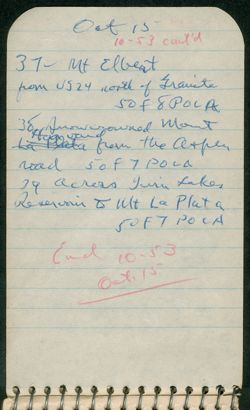 Oct 15
10-53 cont'd
37- Mt Elbert
from US24 north of Granite
50F8 POLA
38 Mount
Harvard
La Plata from the Aspen
road 50F7 POLA
39 across Twin Lakes
Reservoir to Mt La Plata
50F7 POLA
End 10-53
Oct. 15